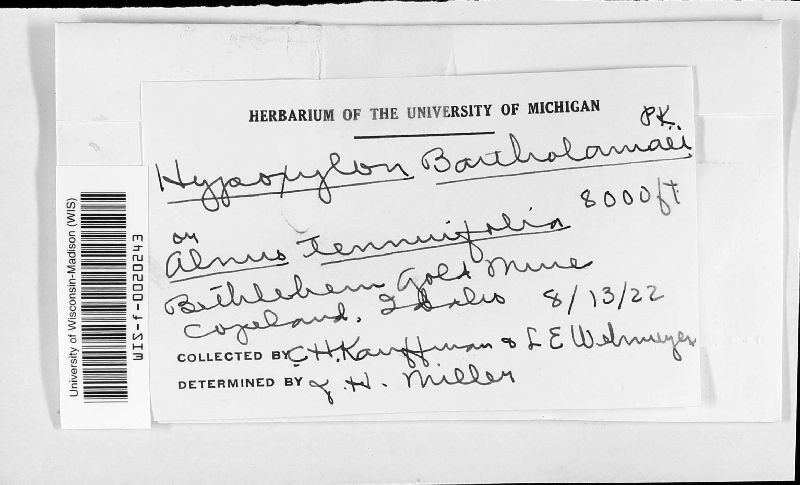 HERBARIUM OF THE UNIVERSITY OF MICHIGAN
Hypoxylon Bartholomaei PK.
on 8000 ft
Alnus tennuifolia
Bethlehem Gold Mine
Copeland, Idaho 8/13/22
COLLECTED BY C.H. Kauffman & L E Wehmeyer
DETERMINED BY J. H. Miller
University of Wisconsin-Madison (WIS)
WIS-f-0020243